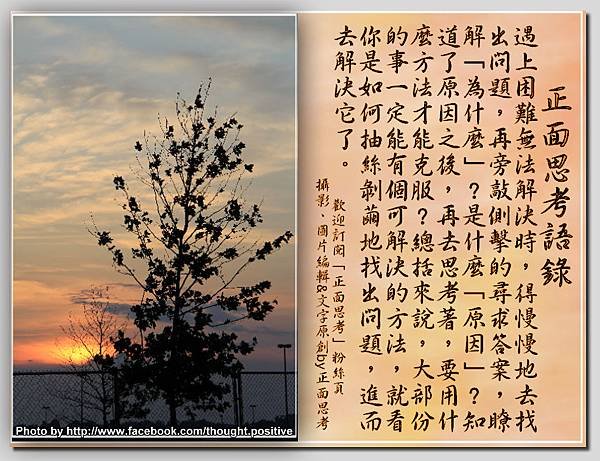 正面思考語錄
遇上困難無法解決時，得慢慢地去找
出問題，再旁敲側擊的尋求答案，瞭
解「為什麼」？是什麼「原因」？知
道了原因之後，再去思考著，要用什
麼方法才能克服？總括來說，大部份
的事一定能有個可解決的方法，就看
你是如何抽絲剝繭地找出問題，進而
去解決它了。
歡迎訂閱「正面思考」粉絲頁
攝影、圖片編輯&文字原創by正面思考
Photo by http://www.facebook.com/thought.positive